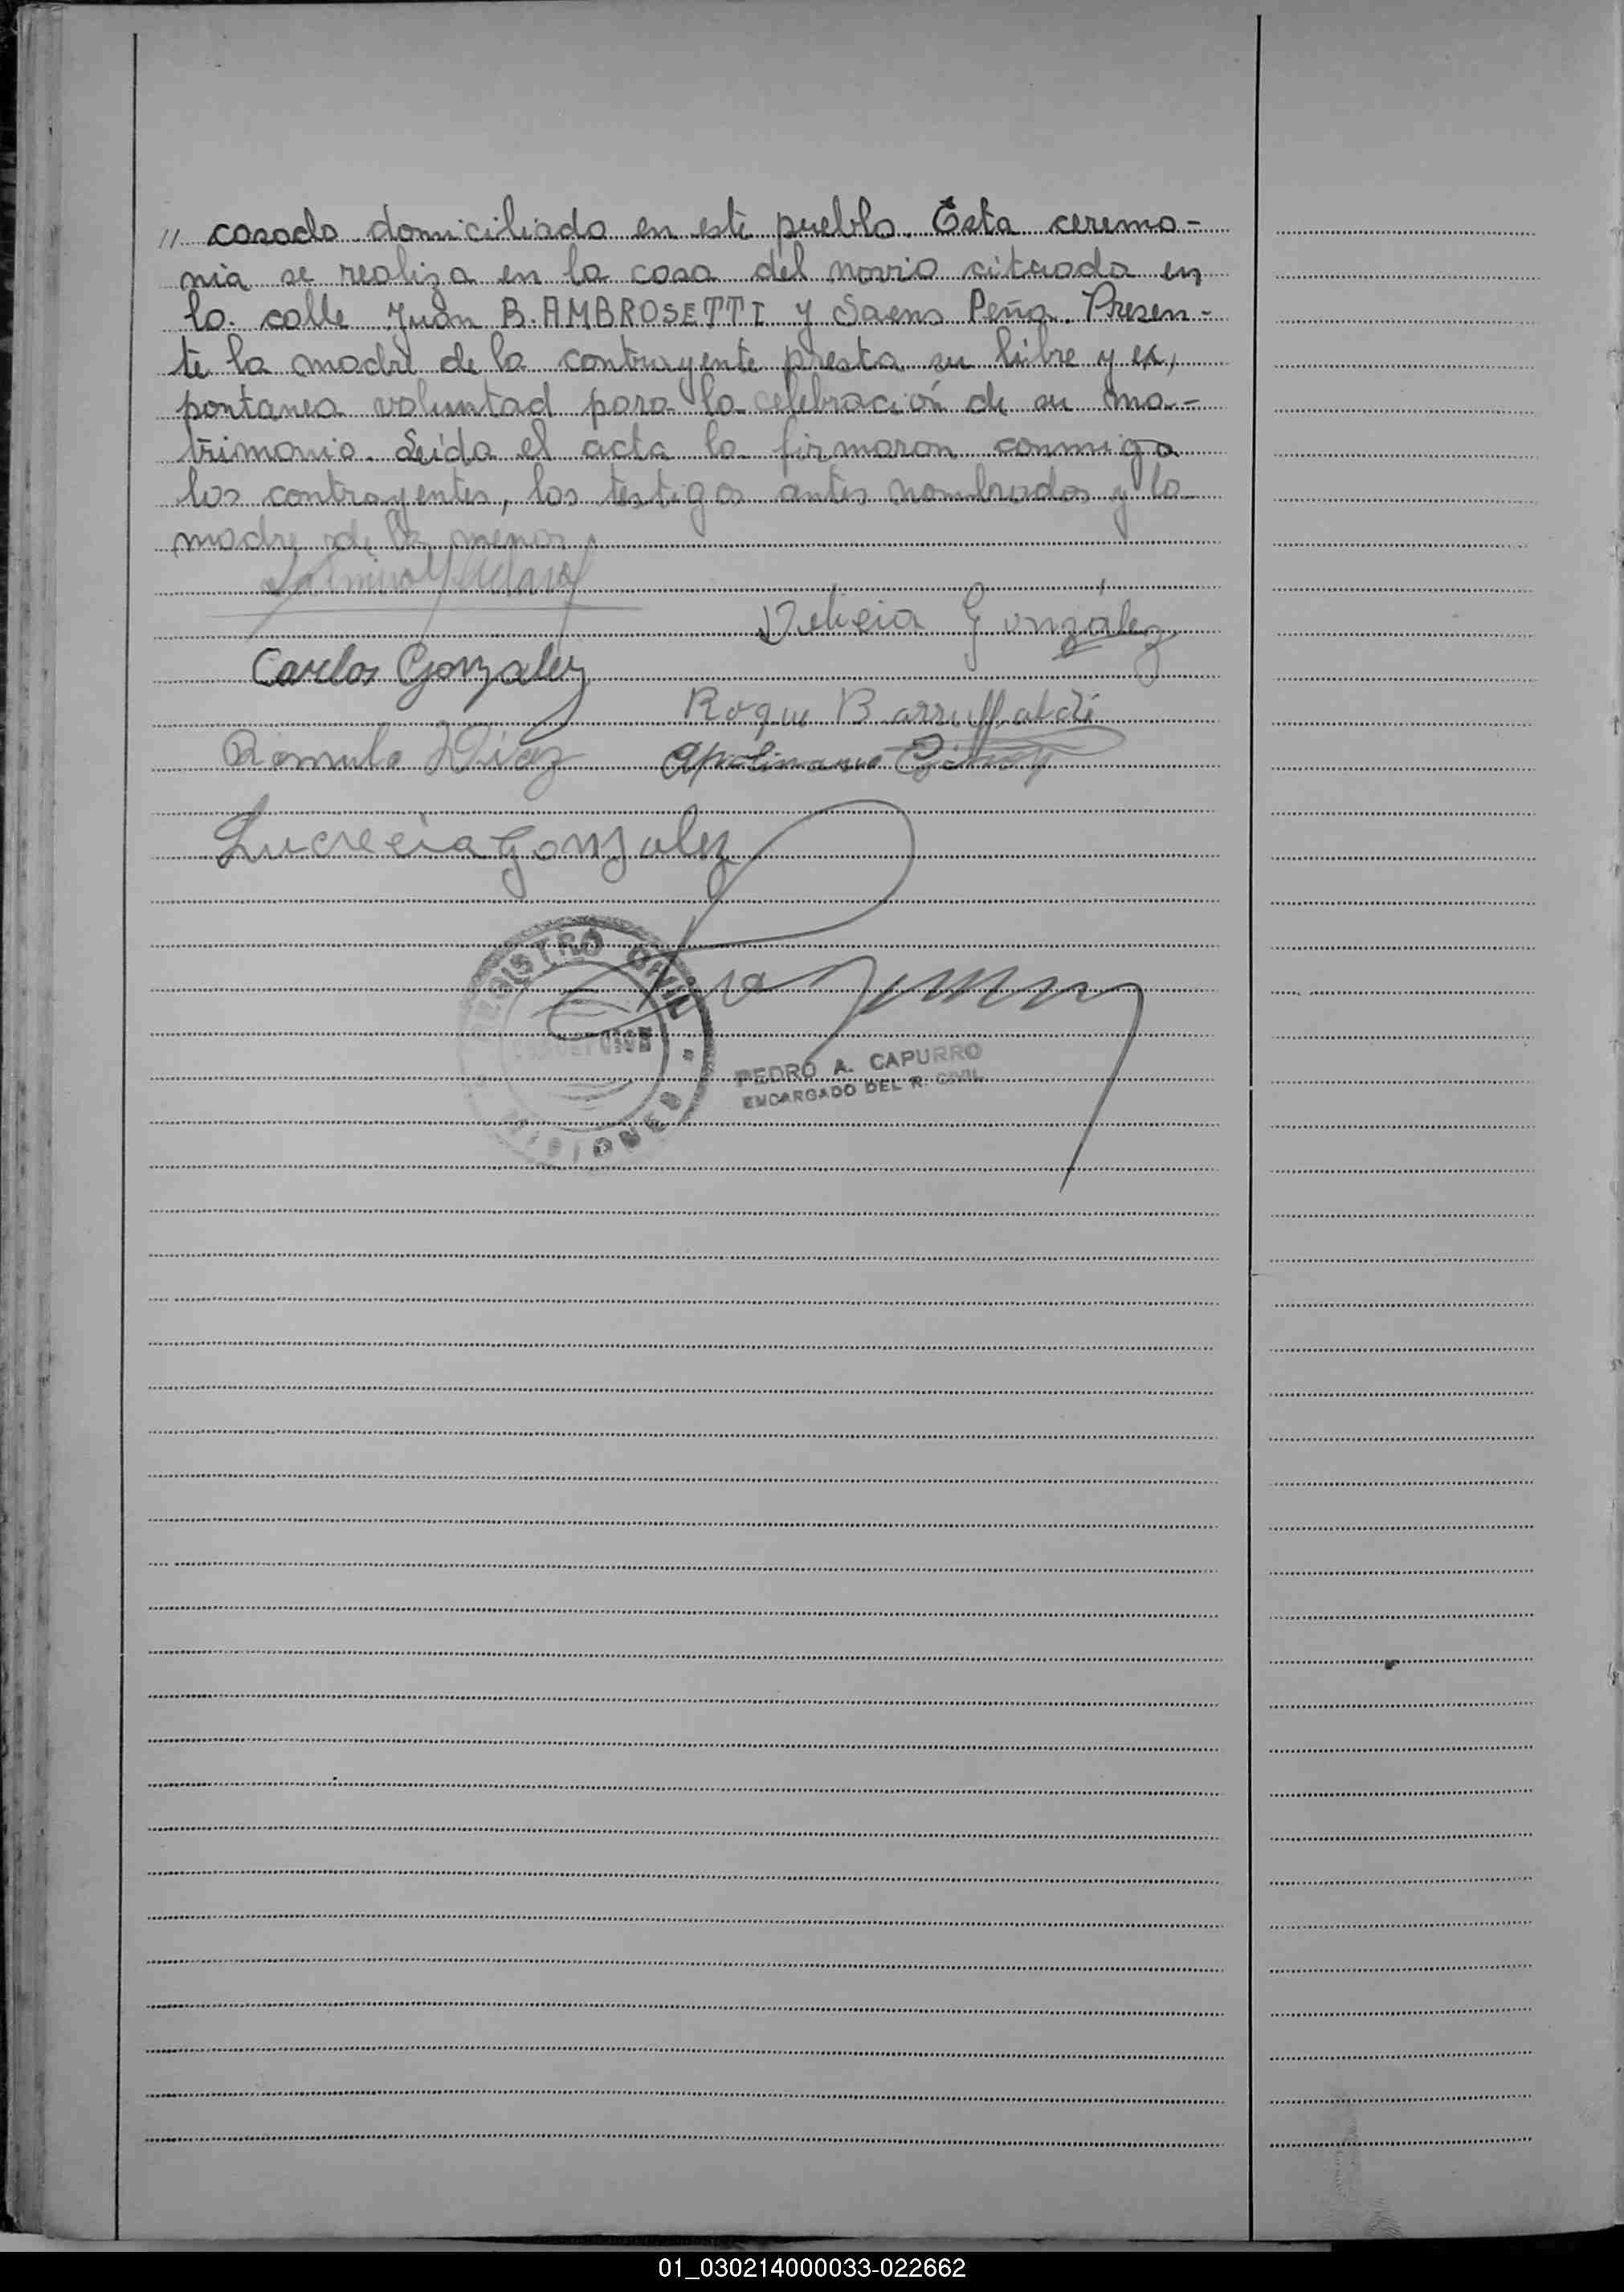 // casado domiciliado en este pueblo. Esta ceremo-
nia se realiza en la casa del novio cituada en
la calle Juan B. AMBROSETTI y Saens Peña. Presen-
te la madre de la contrayente presta su libre y es,
pontanea voluntad para la celebración de su ma-
trimonio. Leida el acta la firmaron conmigo
los contrayentes, los testigos antes nombrados y la
madre de la menor.
Gonzalez
Carlos Gonzalez
Roque Barruffaldi
Romulo Diaz Apolinario
Lucrecia Gonzalez
REGISTRO CIVIL
MISIONES
PEDRO A. CAPURRO
ENCARGADO DEL R. CIVIL
01_030214000033-022662